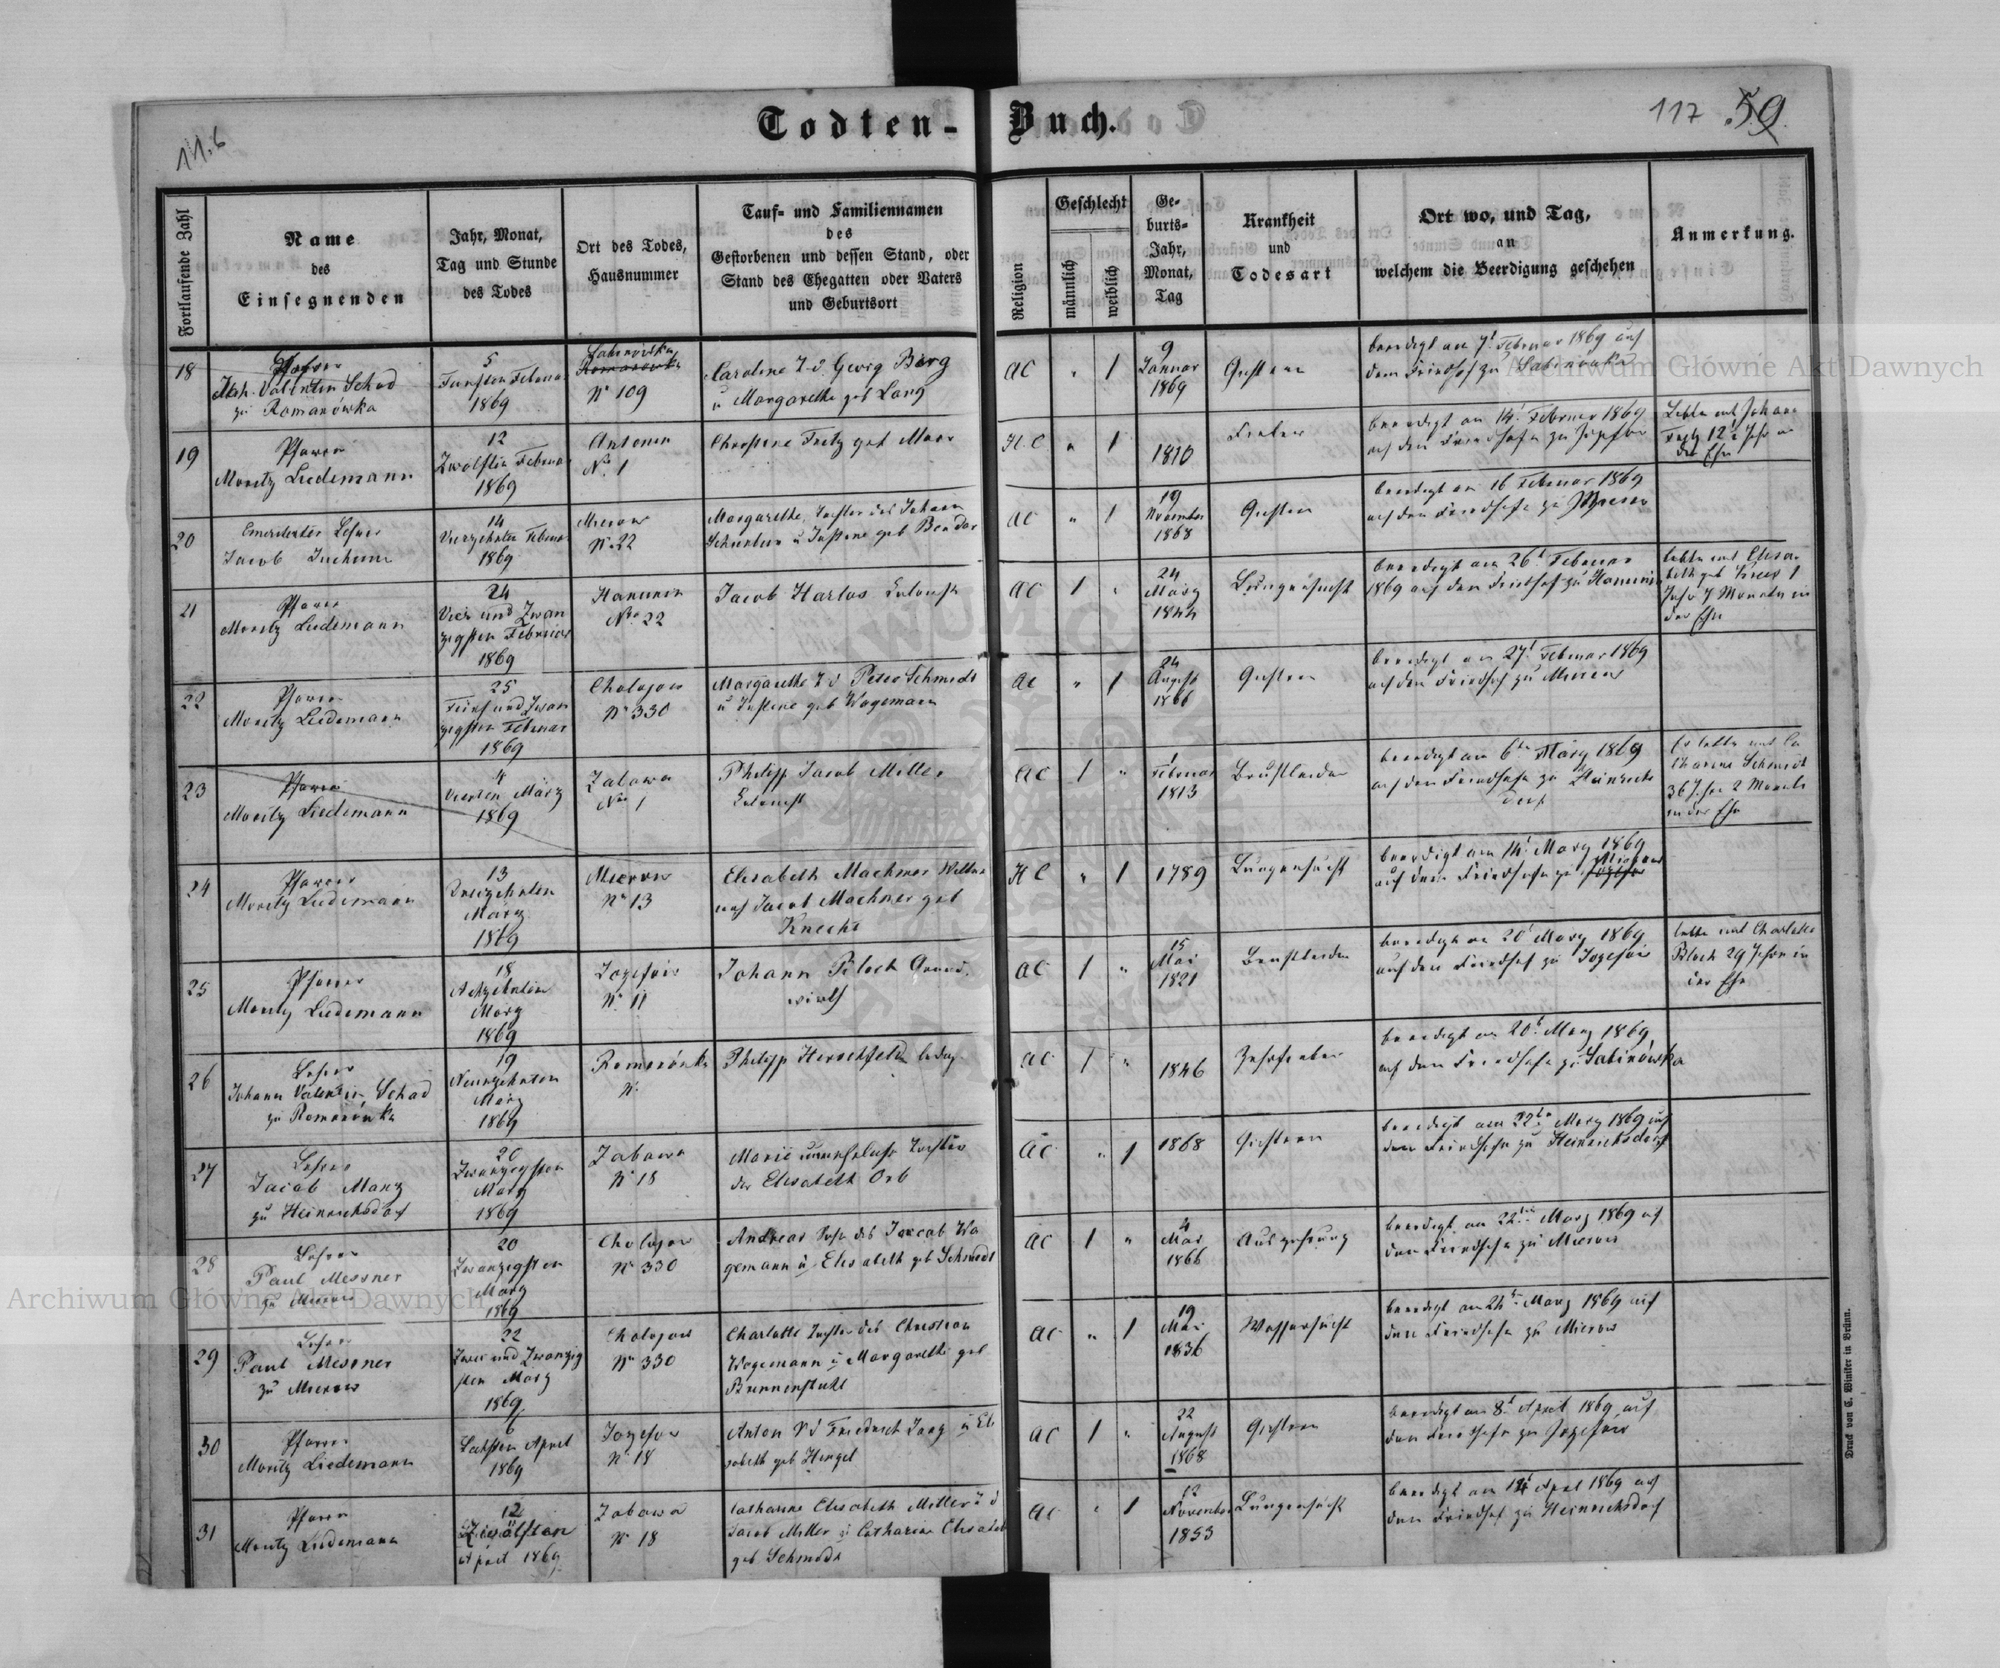 Todten-Buch.
11.6
117 59
Fortlaufende Zahl
Name
des
Einsegnenden
Jahr, Monat,
Tag und Stunde
des Todes
Ort des Todes,
Hausnummer
Tauf- und Familiennamen
des
Gestorbenen und dessen Stand, oder
Stand des Ehegatten oder Vaters
und Geburtsort
Religion
Geschlecht
männlich
weiblich
Ge-
burts-
Jahr,
Monat,
Tag
Krankheit
und
Todesart
Ort wo, und Tag,
an
welchem die Beerdigung geschehen
Anmerkung.
18
Pfarrer
Joh. Valentin Schad
zu Romanówka
5
Fünften Februar
1869
Sabinówka
Romanówka
No 109
Caroline T. d. Georg Berg
u Margarethe geb Lang
AC
1
9
Januar
1869
beerdigt am 7t Februar 1869 auf
dem Friedhof zu Sabinówka
19
Pfarrer
Moritz Liedemann
12
Zwölften Februar
1869
Antonin
No 1
Christine Fritz geb Moor
HC
1
1810
Fieber
beerdigt am 14t Februar 1869
auf dem Friedhofe zu Josefow
Lebte mit Johann
Fritz 12 Jahre in
der Ehe
20
Emeritirter Lehrer
Jacob
14
Vierzehnten Februar
1869
Mierow
No 22
Margarethe Tochter des Johann
u Justine geb Bender
AC
1
19
November
1868
beerdigt am 16 Februar 1869
auf dem Friedhofe zu Mierow
21
Pfarrer
Moritz Liedemann
24
Vier und Zwan
zigsten Februar
1869
Hanunin
No 22
Jacob Harlos Colonist
AC
1
24
März
1844
Lungensucht
beerdigt am 26t Februar
1869 auf dem Friedhof zu Hanunin
lebte mit Elisa-
beth geb 1
Jahr 7 Monate in
der Ehe
22
Pfarrer
Moritz Liedemann
25
Fünf und Zwan
zigsten Februar
1869
Cholojow
No 330
Margarethe T d Peter Schmidt
u Justine geb Wagemann
AC
1
24
August
1866
beerdigt am 27t Februar 1869
auf dem Friedhof zu Mierow
23
Pfarrer
Moritz Liedemann
4
Vierten März
1869
Zabawa
No 1
Philipp Jacob Miller
Colonist
AC
1
1
Februar
1813
Brustleiden
beerdigt am 6ten März 1869
auf dem Friedhofe zu Heinrichs
dorf
Er lebte mit Ca
tharina Schmidt
36 Jahre 2 Monate
in der Ehe
24
Pfarrer
Moritz Liedemann
13
Dreizehnten
März
1869
Mierow
No 13
Elisabeth Machner Wittwe
nach Jacob Machner geb
Knecht
HC
1
1789
Lungensucht
beerdigt am 14t März 1869
auf dem Friedhofe zu Mierow
25
Pfarrer
Moritz Liedemann
18
Achzehnten
März
1869
Jozefow
No 11
Johann Bloch Grund.
wirth
AC
1
15
Mai
1821
Brustleiden
beerdigt am 20t März 1869
auf dem Friedhof zu Jozefów
lebte mit Charlotte
Bloch 29 Jahre in
der Ehe
26
Lehrer
Johann Valentin Schad
zu Romanówka
19
Neunzehnten
März
1869
Romanówka
No
Philipp Hirschfeld ledig
AC
1
1846
Zehrfieber
beerdigt am 20t März 1869
auf dem Friedhofe zu Sabinówka
27
Lehrer
Jacob Manz
zu Heinrichsdorf
20
Zwanzigsten
März
1869
Zabawa
No 18
Marie uneheliche Tochter
der Elisabeth Orb
AC
1
1868
beerdigt am 22ten März 1869 auf
dem Friedhofe zu Heinrichsdorf
28
Lehrer
Paul Messner
zu Mierow
20
Zwanzigsten
März
1869
Cholojow
No 330
Andreas Sohn des Jacob Wa
gemann u Elisabeth geb Schmidt
AC
1
4
Mai
1866
Auszehrung
beerdigt am 22ten März 1869 auf
dem Friedhofe zu Mierow
29
Lehrer
Paul Messner
zu Mierow
22
Zwei und Zwanzig
sten März
1869
Cholojow
No 330
Charlotte Tochter des Christian
Wagemann u Margarethe geb
Brennenstuhl
AC
1
19
Mai
1836
Wassersucht
beerdigt am 24t März 1869 auf
dem Friedhofe zu Mierow
30
Pfarrer
Moritz Liedemann
6
Sechsten April
1869
Jozefow
No 18
Anton S d Friedrich Jung u Eli
sabeth geb Hengel
AC
1
22
August
1868
beerdigt am 8t April 1869 auf
dem Friedhofe zu Jozefów
31
Pfarrer
Moritz Liedemann
12
Zwölften
April 1869
Zabawa
No 18
Catharine Elisabeth Miller T d
Jacob Miller u Catharine Elisabeth
geb Schmidt
AC
1
12
November
1853
Lungensucht
beerdigt am 14t April 1869 auf
dem Friedhof zu Heinrichsdorf
Druck von C. Winiker in Brünn.
Archiwum Główne Akt Dawnych
Archiwum Główne Akt Dawnych